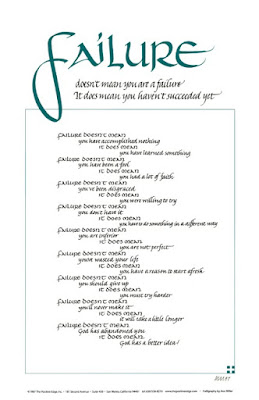 FAILURE
doesn't mean you are a failure
It does mean you haven't succeeded yet
FAILURE DOESN'T MEAN
you have accomplished nothing
IT DOES MEAN
you have learned something
FAILURE DOESN'T MEAN
you have been a fool
IT DOES MEAN
you had a lot of faith
FAILURE DOESN'T MEAN
you've been disgraced
IT DOES MEAN
you were willing to try
FAILURE DOESN'T MEAN
you don't have it
IT DOES MEAN
you have to do something in a different way
FAILURE DOESN'T MEAN
you are inferior
IT DOES MEAN
you are not perfect
FAILURE DOESN'T MEAN
you've wasted your life
IT DOES MEAN
you have a reason to start afresh
FAILURE DOESN'T MEAN
you should give up
IT DOES MEAN
you must try harder
FAILURE DOESN'T MEAN
you'll never make it
IT DOES MEAN
it will take a little longer
FAILURE DOESN'T MEAN
God has abandoned you
IT DOES MEAN
God has a better idea!